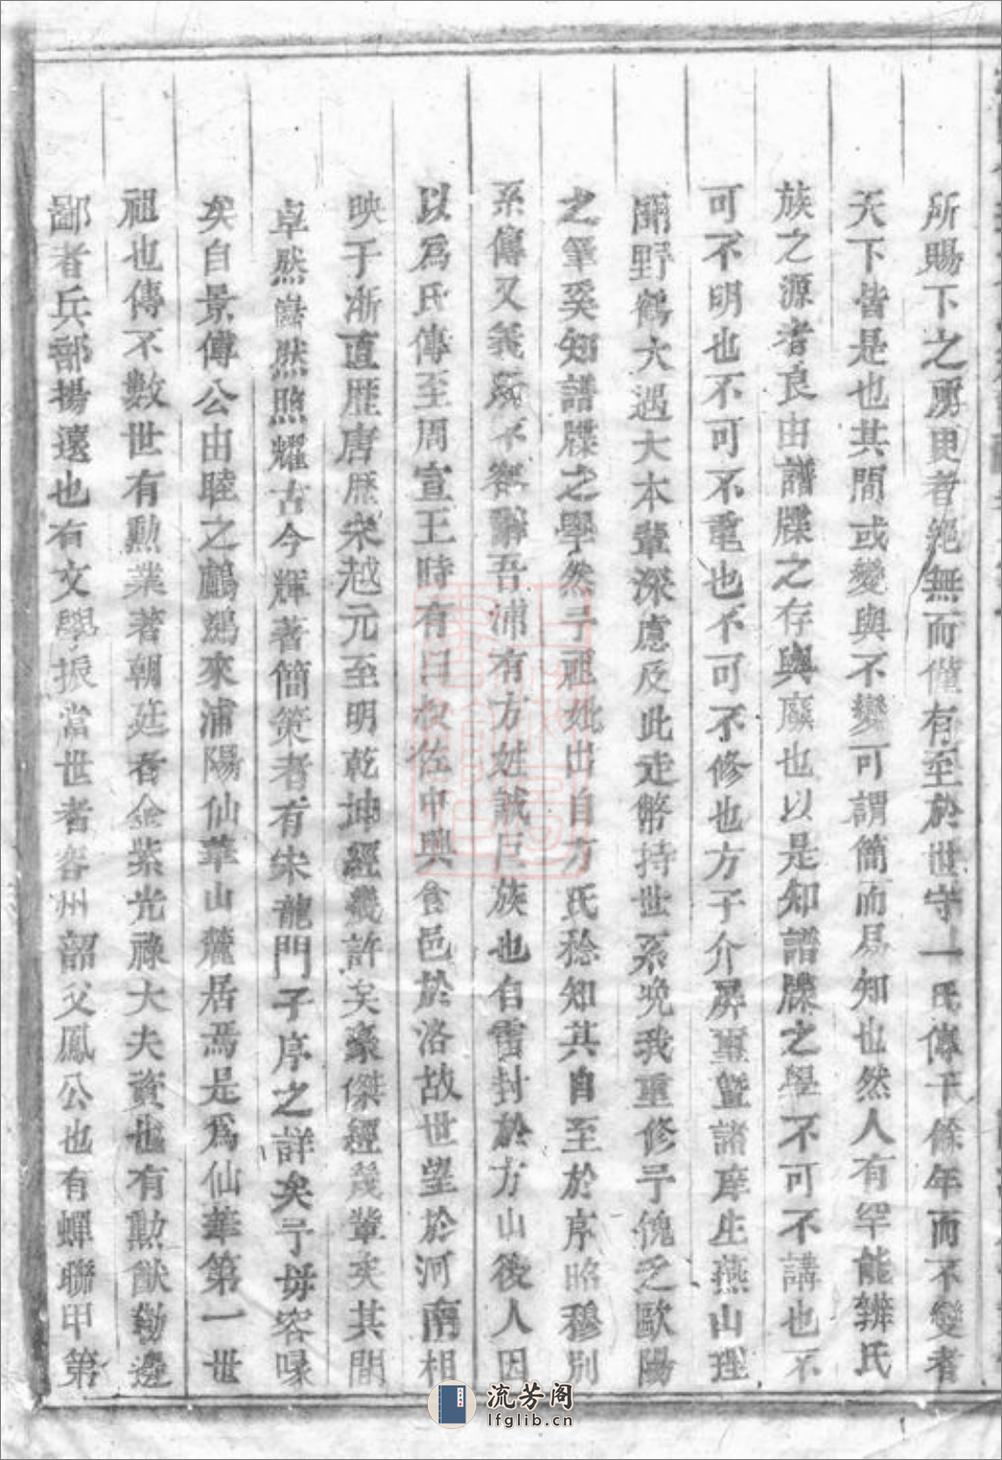 所賜下之勇更者絕無而僅有至於世守一氏傳千餘年而不變者
天下皆是也其間或變與不變可謂簡而易知也然人有罕能辨氏
族之源者良由譜牒之存與廢也以是知譜牒之學不可不講也不
可不明也不可不重也不可不修也方子介屏璽暨諸庠生燕山理
開野鶴大遇大本輩深慮及此走幣持世系晚我重修予愧乏歐陽
之筆奚知譜牒之學然予祖妣出自方氏稔知其自至於序昭穆別
系傳又義所不容辭吾浦有方姓誠巨族也自雷封於方山後人因
以為氏傳至周宣王時有曰叔佐中興食邑於洛故世望於河南相
映于浙直歷唐歷宋越元至明乾坤經幾許矣豪傑經幾輩矣其間
卓然巋然照耀古今輝著簡策者有宋龍門子序之詳矣予毋容喙
矣自景傅公由睦之鸕鷀來浦陽仙華山麓居焉是為仙華第一世
祖也傳不數世有勳業著朝廷者金紫光祿大夫資也有勳猷勒邊
鄙者兵部揚遠也有文學振當世者容州韶父鳳公也有蟬聯甲第
流芳阁
lfglib.cn